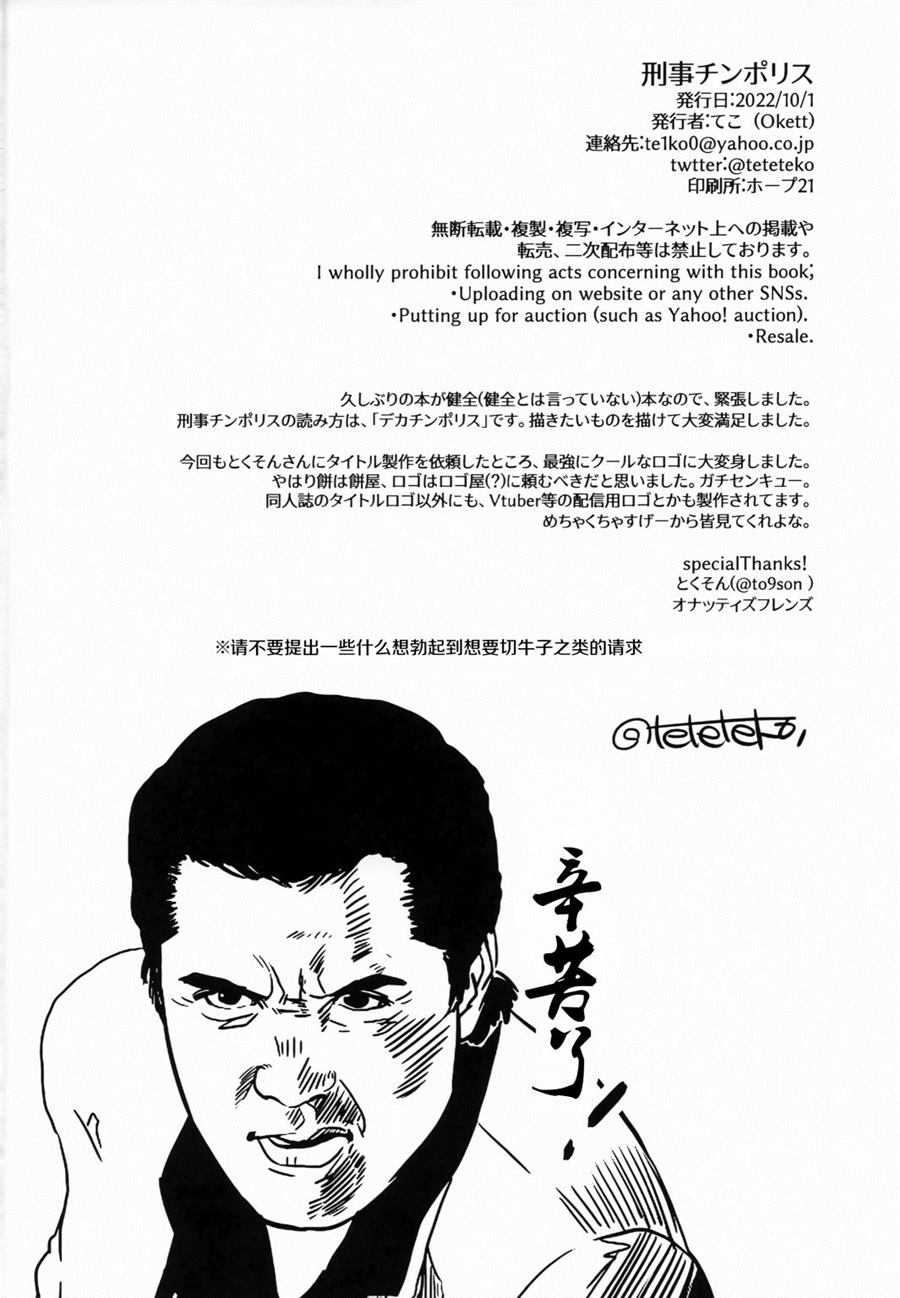 刑事チンポリス
発行日:2022/10/1
発行者:てこ（Okett）
連絡先:te1ko0@yahoo.co.jp
twtter:@teteteko
印刷所:ホープ21
無断転載・複製・複写・インターネット上への掲載や
転売、二次配布等は禁止しております。
I wholly prohibit following acts concerning with this book;
・Uploading on website or any other SNSs.
・Putting up for auction (such as Yahoo! auction).
・Resale.
久しぶりの本が健全(健全とは言っていない)本なので、緊張しました。
刑事チンポリスの読み方は、「デカチンポリス」です。描きたいものを描けて大変満足しました。
今回もとくそんさんにタイトル製作を依頼したところ、最強にクールなロゴに大変身しました。
やはり餅は餅屋、ロゴはロゴ屋(?)に頼むべきだと思いました。ガチセンキュー。
同人誌のタイトルロゴ以外にも、Vtuber等の配信用ロゴとかも製作されてます。
めちゃくちゃすげーから皆見てくれよな。
specialThanks!
とくそん(@to9son )
オナッティズフレンズ
※请不要提出一些什么想勃起到想要切牛子之类的请求
@teteteko,
辛苦了!